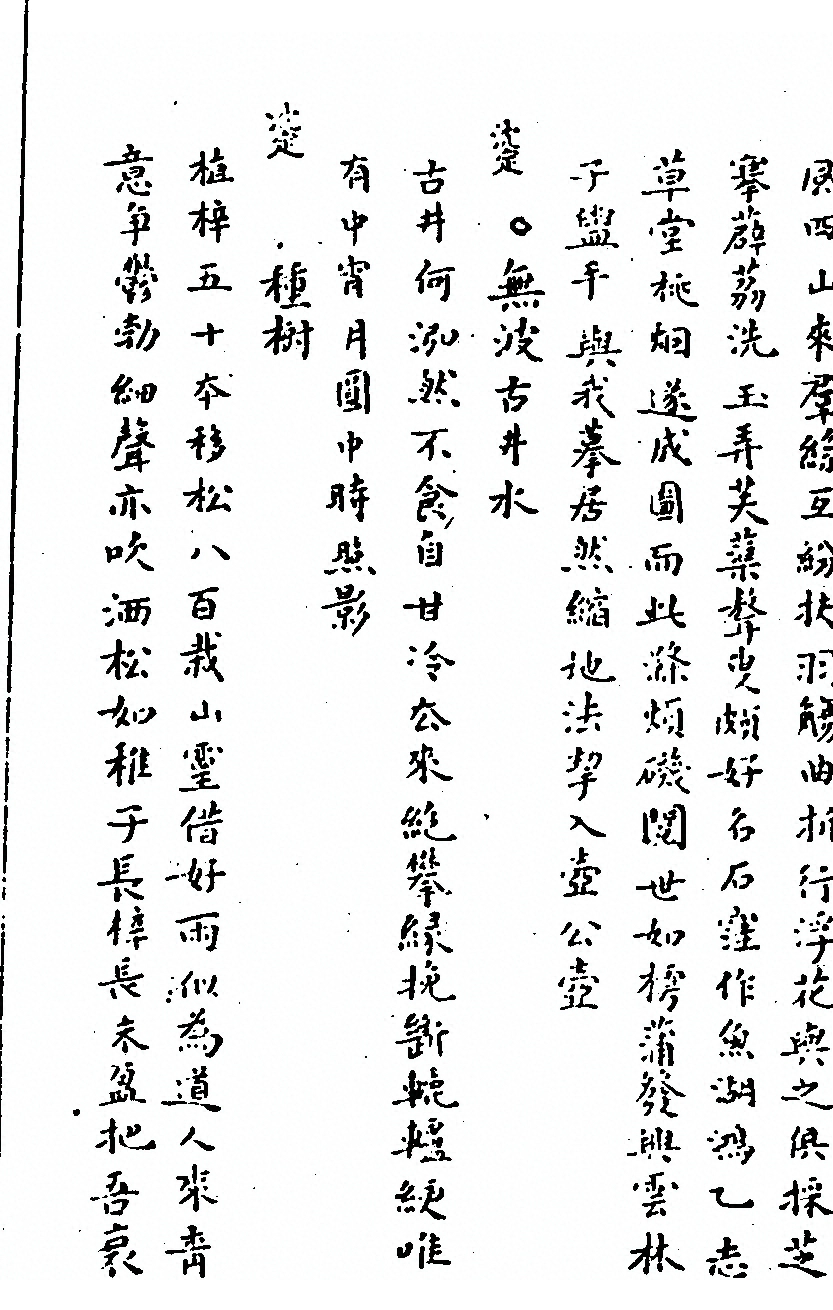 四山來羣絲互紛扶羽觴曲折行浮花與之俱採芝
搴薜荔洗玉弄芙蕖聱叟頗好名石窪作魚湖鴻乙志
草堂桃烟遂成圖而此滌煩磯閱世如樗蒲發興雲林
子盥手與我摹居然縮地法挈入壺公壺
○無波古井水
古井何泓然不食自甘冷厺來絶攀緣挽斷轆轤綆唯
有中宵月圓中時照影
種樹
植梓五十本移松八百栽山靈借好雨似為道人來青
意争鬱勃細聲亦吹洒松如稚子長梓長未盈把吾衰